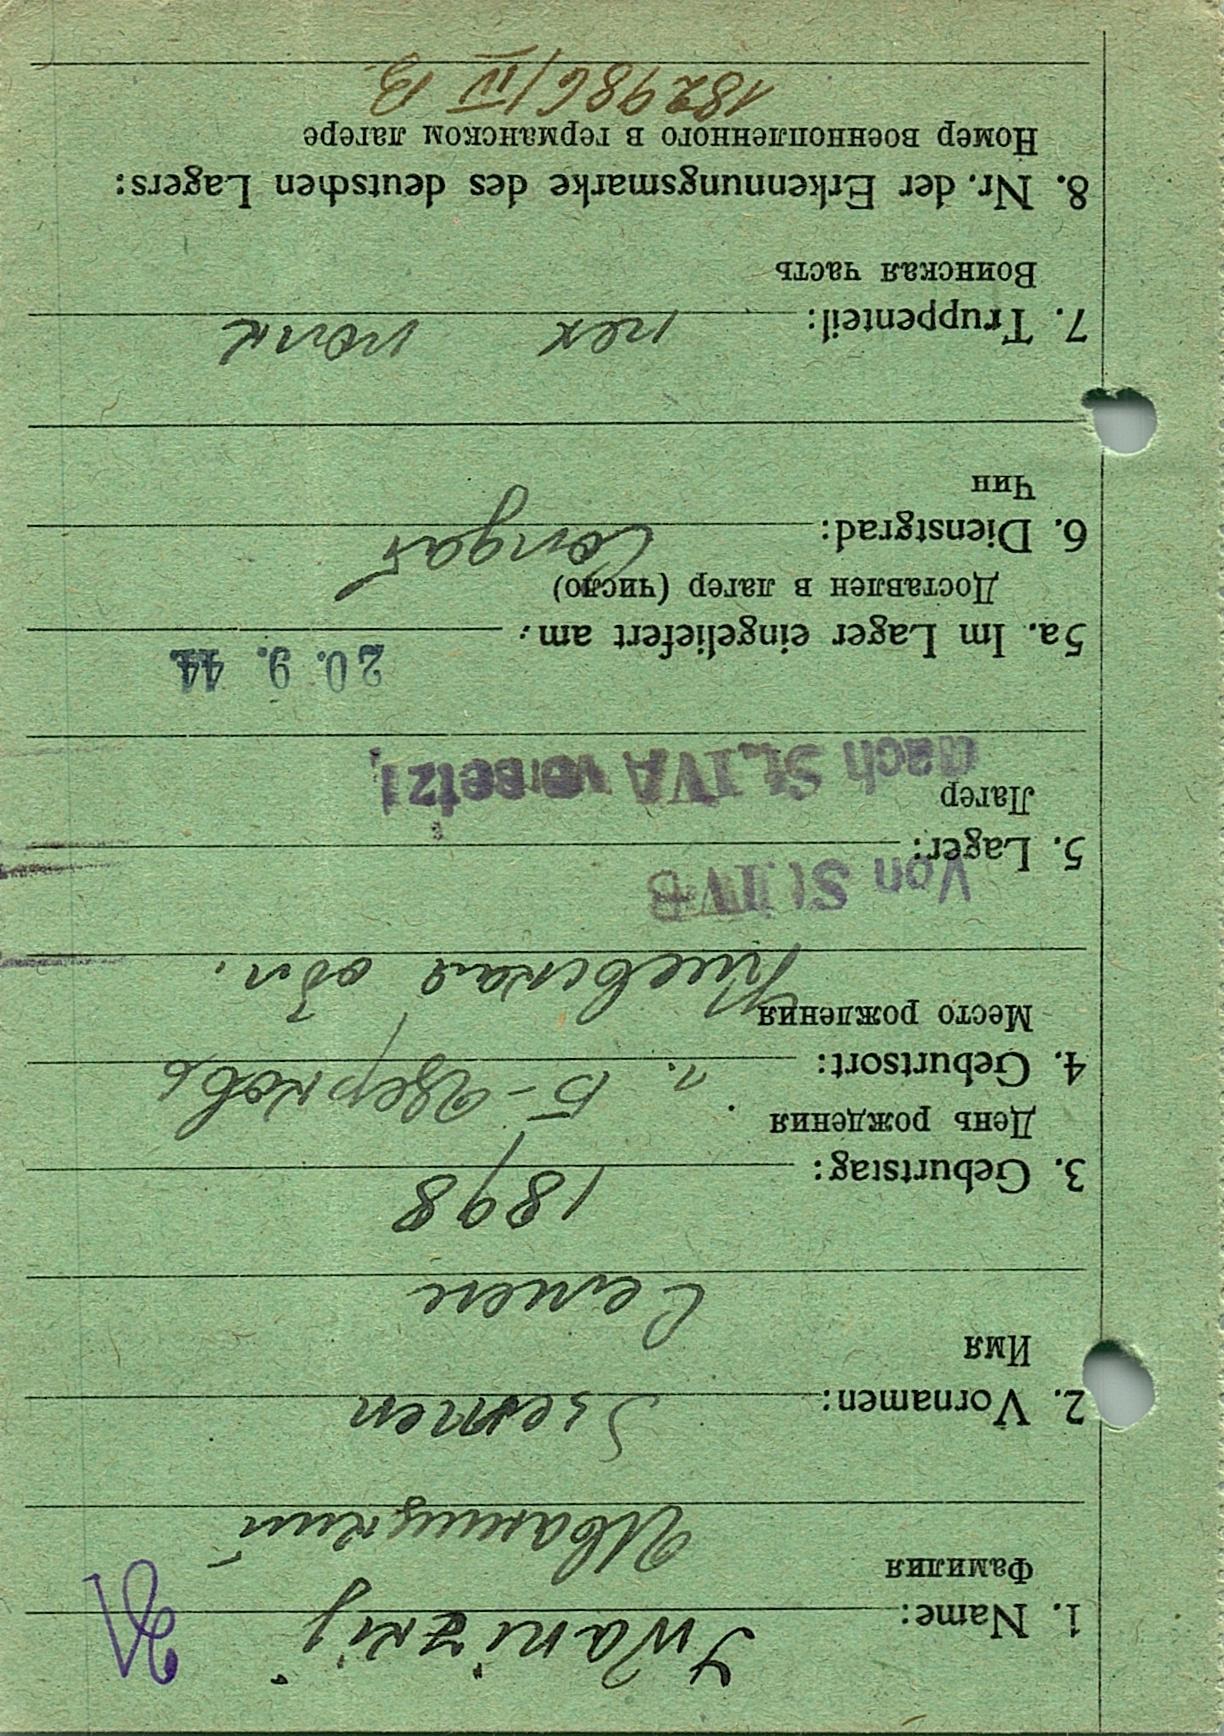 1. Name: Iwanizkij
Фамилия Иваницкий
2. Vornamen: Ssemen
Имя
Семен
3. Geburtstag: 1898
День рождения
4. Geburtsort: г. Б-Церковь
Место рождения
Киевская обл.
Von St. IV B
5. Lager:
Лагер
nach St. IV A versetzt
20. 9. 44
5a. Im Lager eingeliefert am:
Доставлен в лагер (число)
6. Dienstgrad: Солдат
Чин
7. Truppenteil: пех полк
Воинская часть
8. Nr. der Erkennungsmarke des deutschen Lagers:
Номер военнопленного в германском лагере
182986/IV B